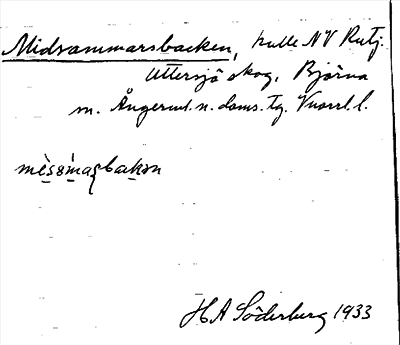 Midsommarsbacken, kulle NV Rutj.
Uttersjö skog, Björna
m. Ångerml. n. doms. tg. Vnorrl. l.
mèssmasbackən
HA Söderberg 1933